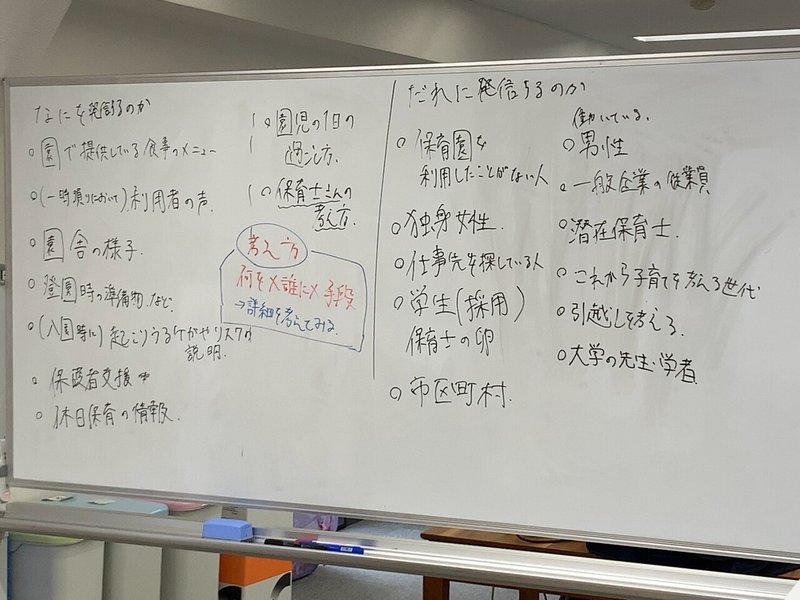 なにを発信するのか
○園で提供している食事のメニュー
○(一時預りにおいて)利用者の声.
○園舎の様子.
○登園時の準備物.など.
○(入園時に)起こりうるケガやリスクの
説明.
○保護者支援
○休日保育の情報.
○園児の1日の
過ごし方.
○保育士さんの
考え方.
考え方
何を×誰に×手段
→詳細を考えてみる.
だれに発信するのか
○保育園を
利用したことがない人
○独身女性.
○仕事先を探している人
○学生(採用)
保育士の卵
○市区町村.
働いている.
○男性
○一般企業の従業員
○潜在保育士.
○これから子育てを考える世代
○引越しを考える.
○大学の先生・学者